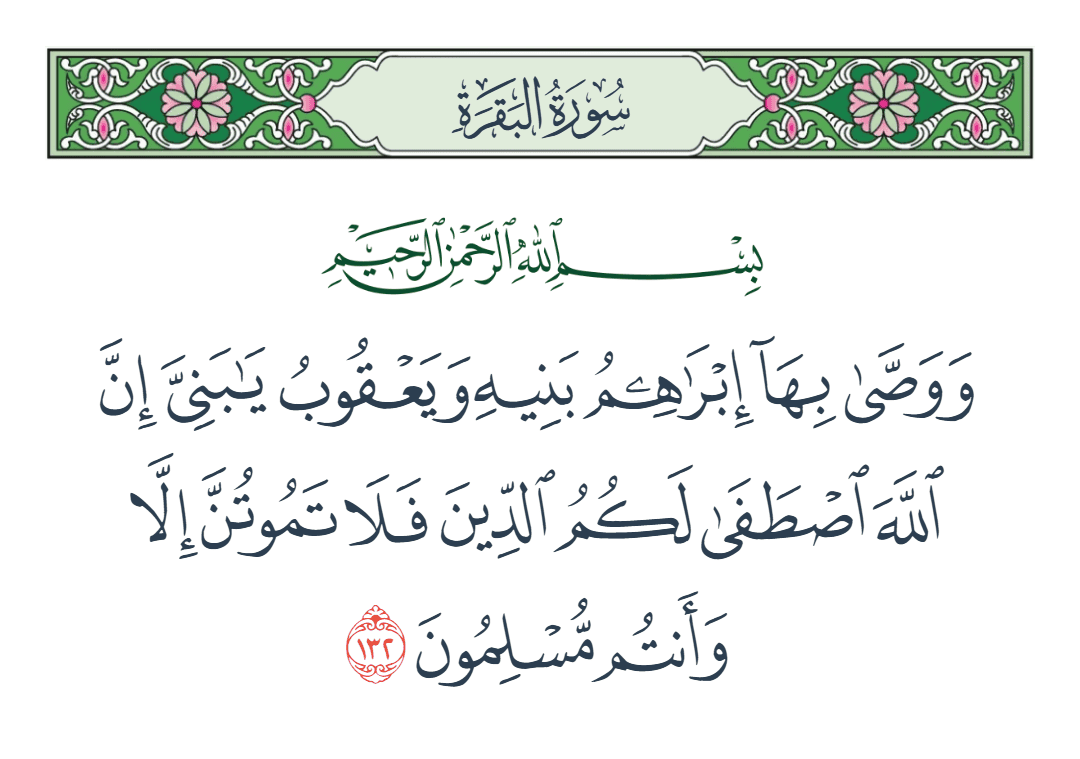 سُورَةُ البَقَرَةِ
بِسْمِ ٱللَّهِ ٱلرَّحْمَٰنِ ٱلرَّحِيمِ
وَوَصَّىٰ بِهَآ إِبْرَٰهِـۧمُ بَنِيهِ وَيَعْقُوبُ يَـٰبَنِىَّ إِنَّ
ٱللَّهَ ٱصْطَفَىٰ لَكُمُ ٱلدِّينَ فَلَا تَمُوتُنَّ إِلَّا
وَأَنتُم مُّسْلِمُونَ ١٣٢